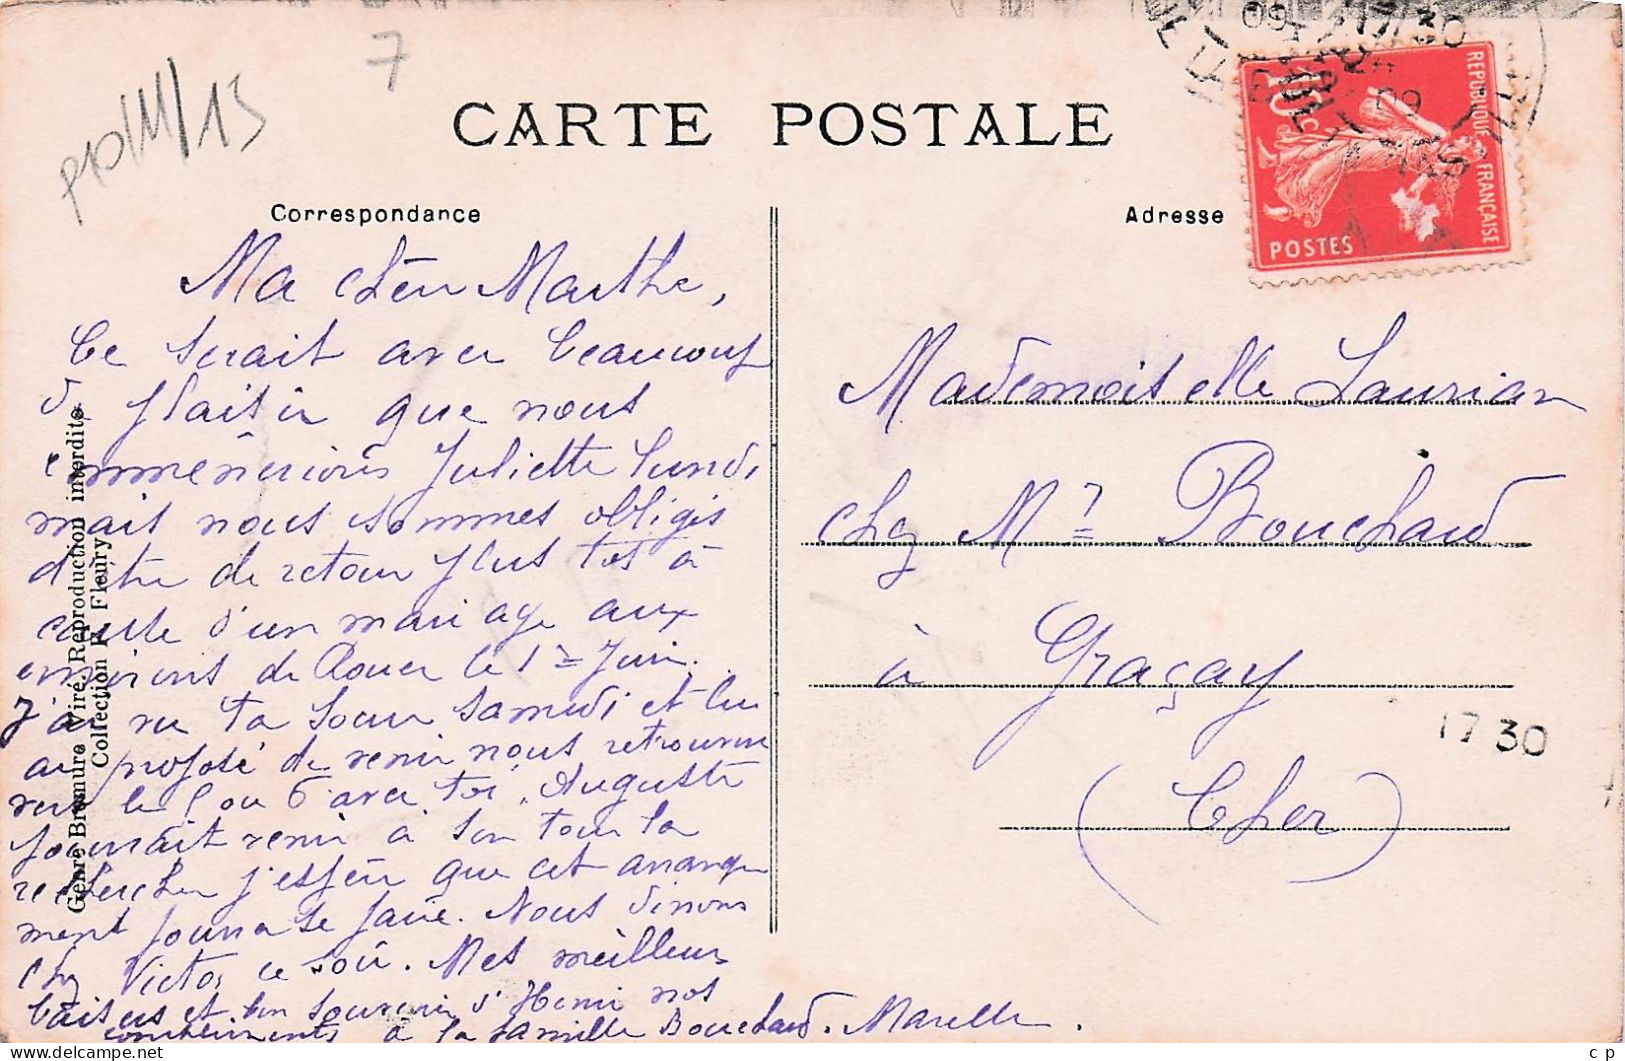 7
CARTE POSTALE
Correspondance
Adresse
REPUBLIQUE FRANÇAISE
10c
POSTES
17 30
09
Ma chère Marthe,
Ce serait avec beaucoup
de plaisir que nous
emmènerions Juliette lundi
mais nous sommes obligés
d'être de retour plus tôt à
cause d'un mariage aux
environs de Rouen le 1er Juin.
J'ai vu ta soeur samedi et lui
ai proposé de venir nous retrouver
vers le 5 ou 6 avec toi, Auguste
pourrait venir à son tour la
rechercher j'espère que cet arrange
ment pourra se faire. Nous dinons
chez Victor ce soir. Mes meilleurs
baisers et bon souvenir d'Henri nos
compliments à la famille Bouchard. Marcelle.
Mademoiselle Laurian
chez Mr Bouchard
à Graçay
(Cher)
17 30
Genre Bromure Viré. Reproduction interdite
Collection F. Fleury
c p